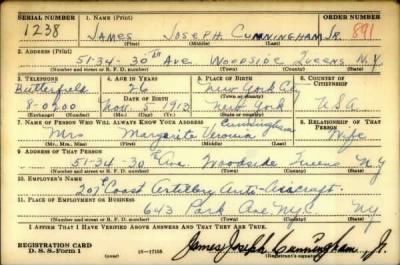 SERIAL NUMBER 1. NAME (Print) ORDER NUMBER
1238 JAMES JOSEPH CUNNINGHAM JR. 891
(First) (Middle) (Last)
2. ADDRESS (Print)
51-34-30TH AVE WOODSIDE QUEENS N.Y.
(Number and street or R. F. D. number) (Town) (County) (State)
3. TELEPHONE 4. AGE IN YEARS 5. PLACE OF BIRTH 6. COUNTRY OF CITIZENSHIP
Butterfield 26 New York City
DATE OF BIRTH (Town or county)
8-0200 Nov. 5 1912 New York USA
(Exchange) (Number) (Mo.) (Day) (Yr.) (State or country)
7. NAME OF PERSON WHO WILL ALWAYS KNOW YOUR ADDRESS 8. RELATIONSHIP OF THAT PERSON
Cunningham
Mrs Margarita Veronica Wife
(Mr., Mrs., Miss) (First) (Middle) (Last)
9. ADDRESS OF THAT PERSON
51-34-30 Ave. Woodside Queens NY
(Number and street or R. F. D. number) (Town) (County) (State)
10. EMPLOYER'S NAME
207th Coast Artillery Anti-Aircraft
11. PLACE OF EMPLOYMENT OR BUSINESS
643 Park Ave NYC NY
(Number and street or R. F. D. number) (Town) (County) (State)
I AFFIRM THAT I HAVE VERIFIED ABOVE ANSWERS AND THAT THEY ARE TRUE.
REGISTRATION CARD
D. S. S. Form 1 16-17105 James Joseph Cunningham, Jr.
(Registrant's signature)